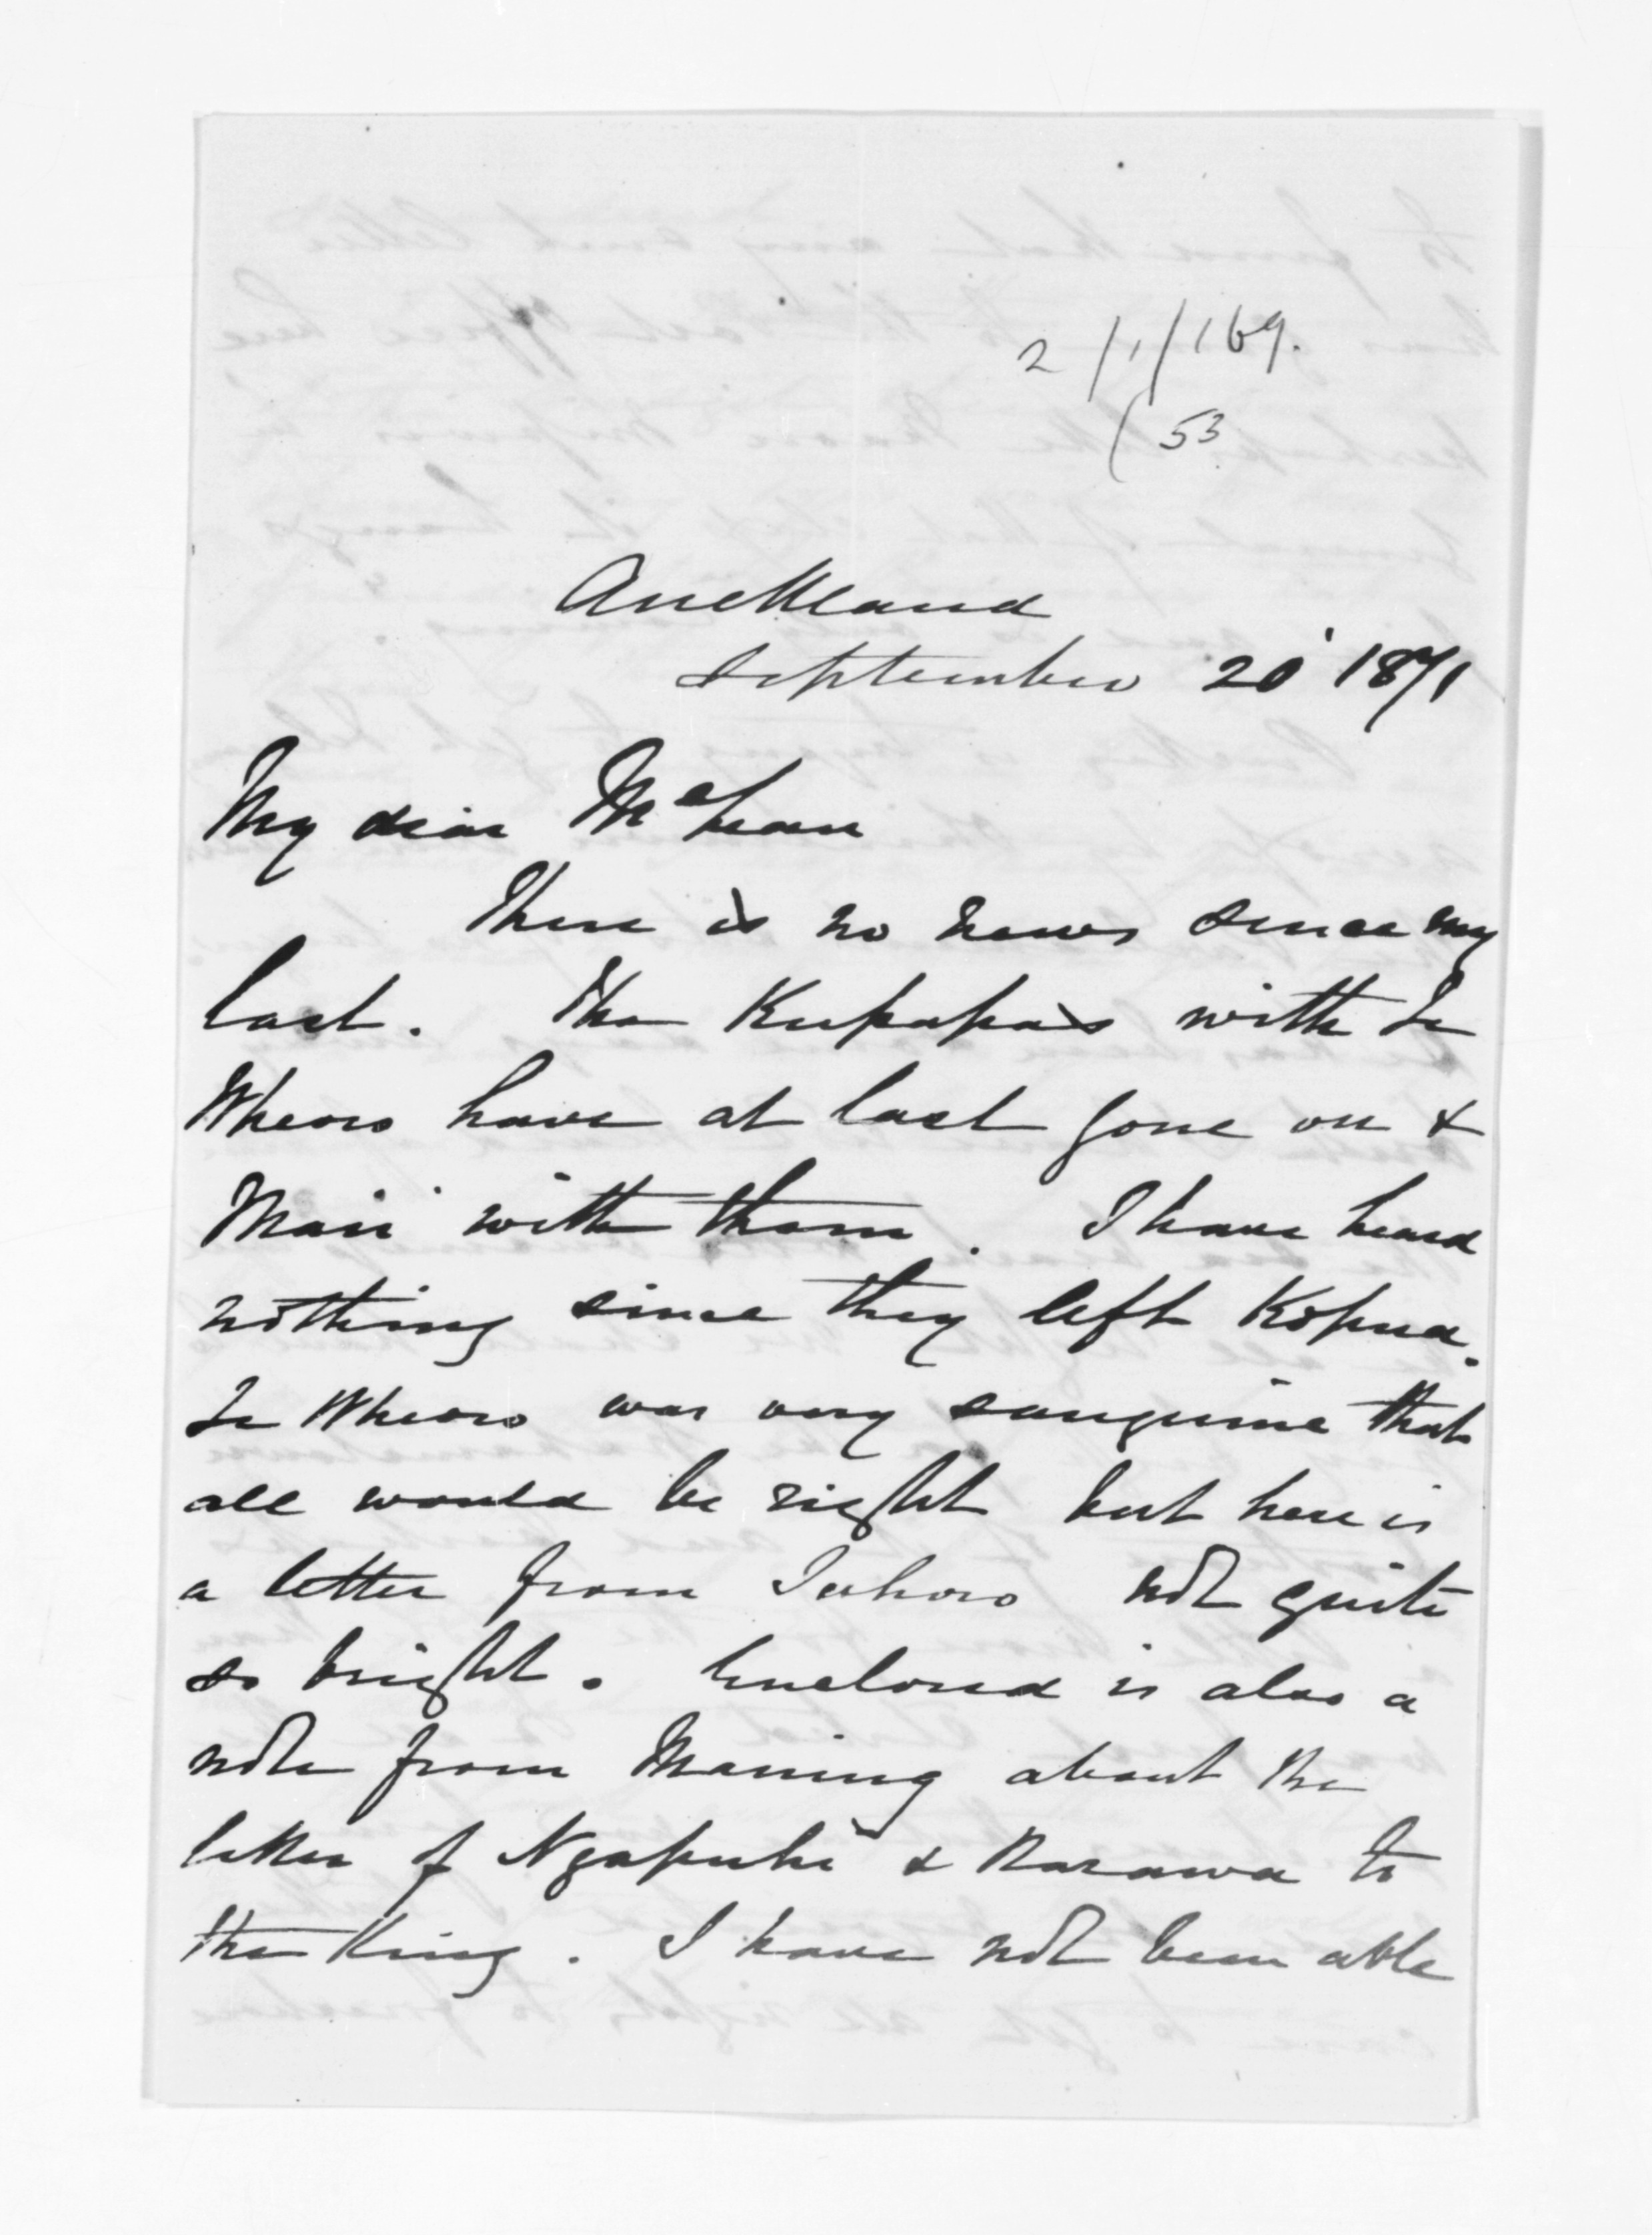 2/1/169.
(53
Auckland
September 20' 1871
My dear McLean
There is no news since my
last. The Kupapas with Te
Wheoro have at last gone on &
Mair with them. I have heard
nothing since they left Kopua.
Te Wheoro was very sanguine that
all would be right but here is
a letter from Searancke not quite
so bright. Enclosed is also a
note from Maning about the
letter of Ngapuhi & Rarawa to
the King. I have not been able